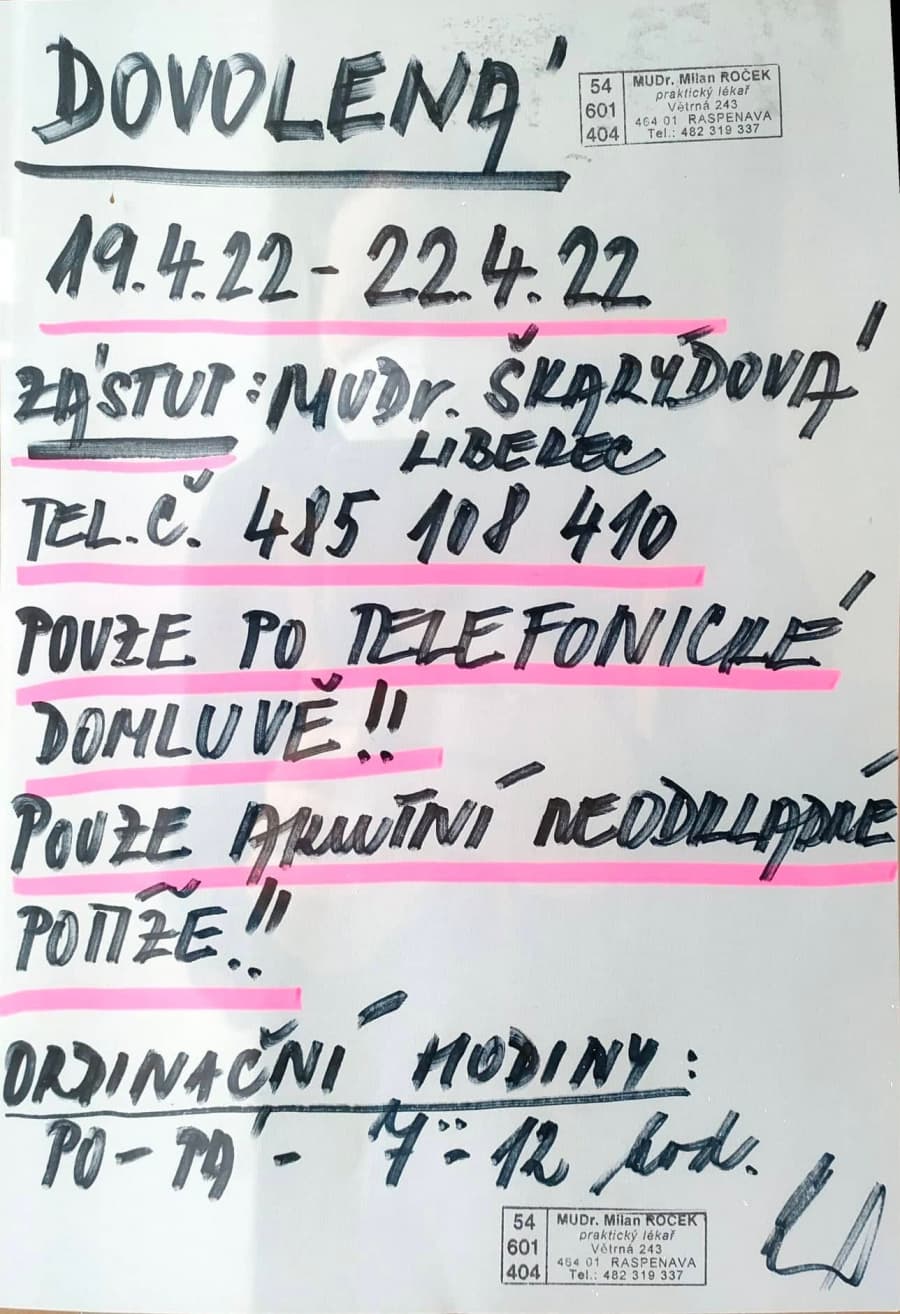 DOVOLENÁ
54 601 404
MUDr. Milan ROČEK
praktický lékař
Větrná 243
464 01 RASPENAVA
Tel.: 482 319 337
19.4.22 - 22.4.22
ZÁSTUP: MUDr. ŠKARYDOVÁ
LIBEREC
TEL.Č. 485 108 410
POUZE PO TELEFONICKÉ
DOMLUVĚ!!
POUZE AKUTNÍ NEODKLADNÉ
POTÍŽE!!
ORDINAČNÍ HODINY:
PO - PÁ - 7 - 12 hod.
54 601 404
MUDr. Milan ROČEK
praktický lékař
Větrná 243
464 01 RASPENAVA
Tel.: 482 319 337